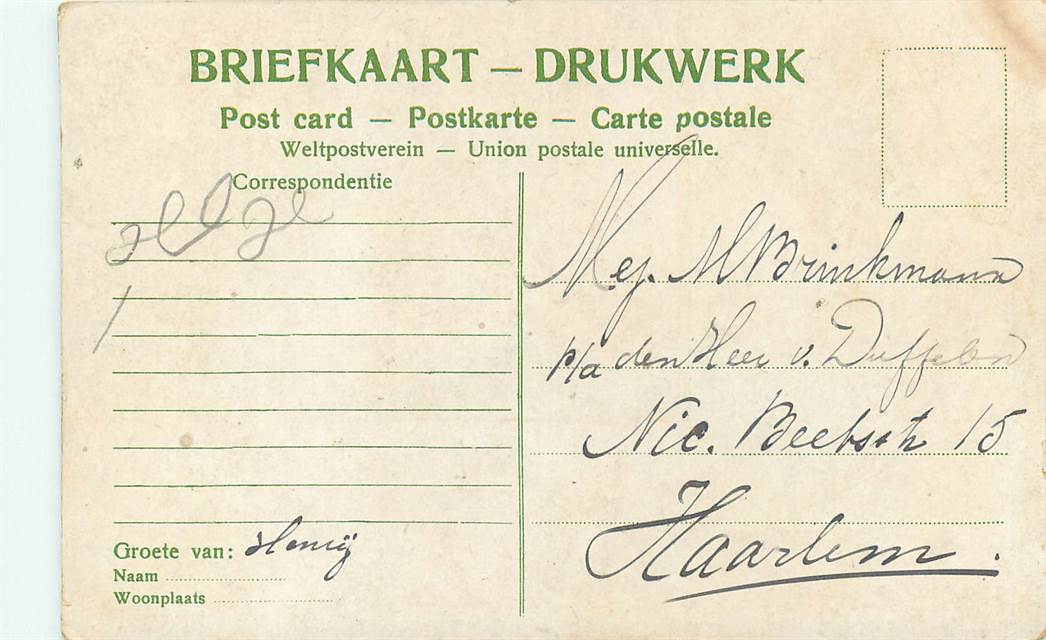 BRIEFKAART — DRUKWERK
Post card — Postkarte — Carte postale
Weltpostverein — Union postale universelle.
Correspondentie
Groete van:
Naam
Woonplaats
Mej. M Brinkmann
p/a den Heer v. Duffelen
Nic. Beetsstr 15
Haarlem.